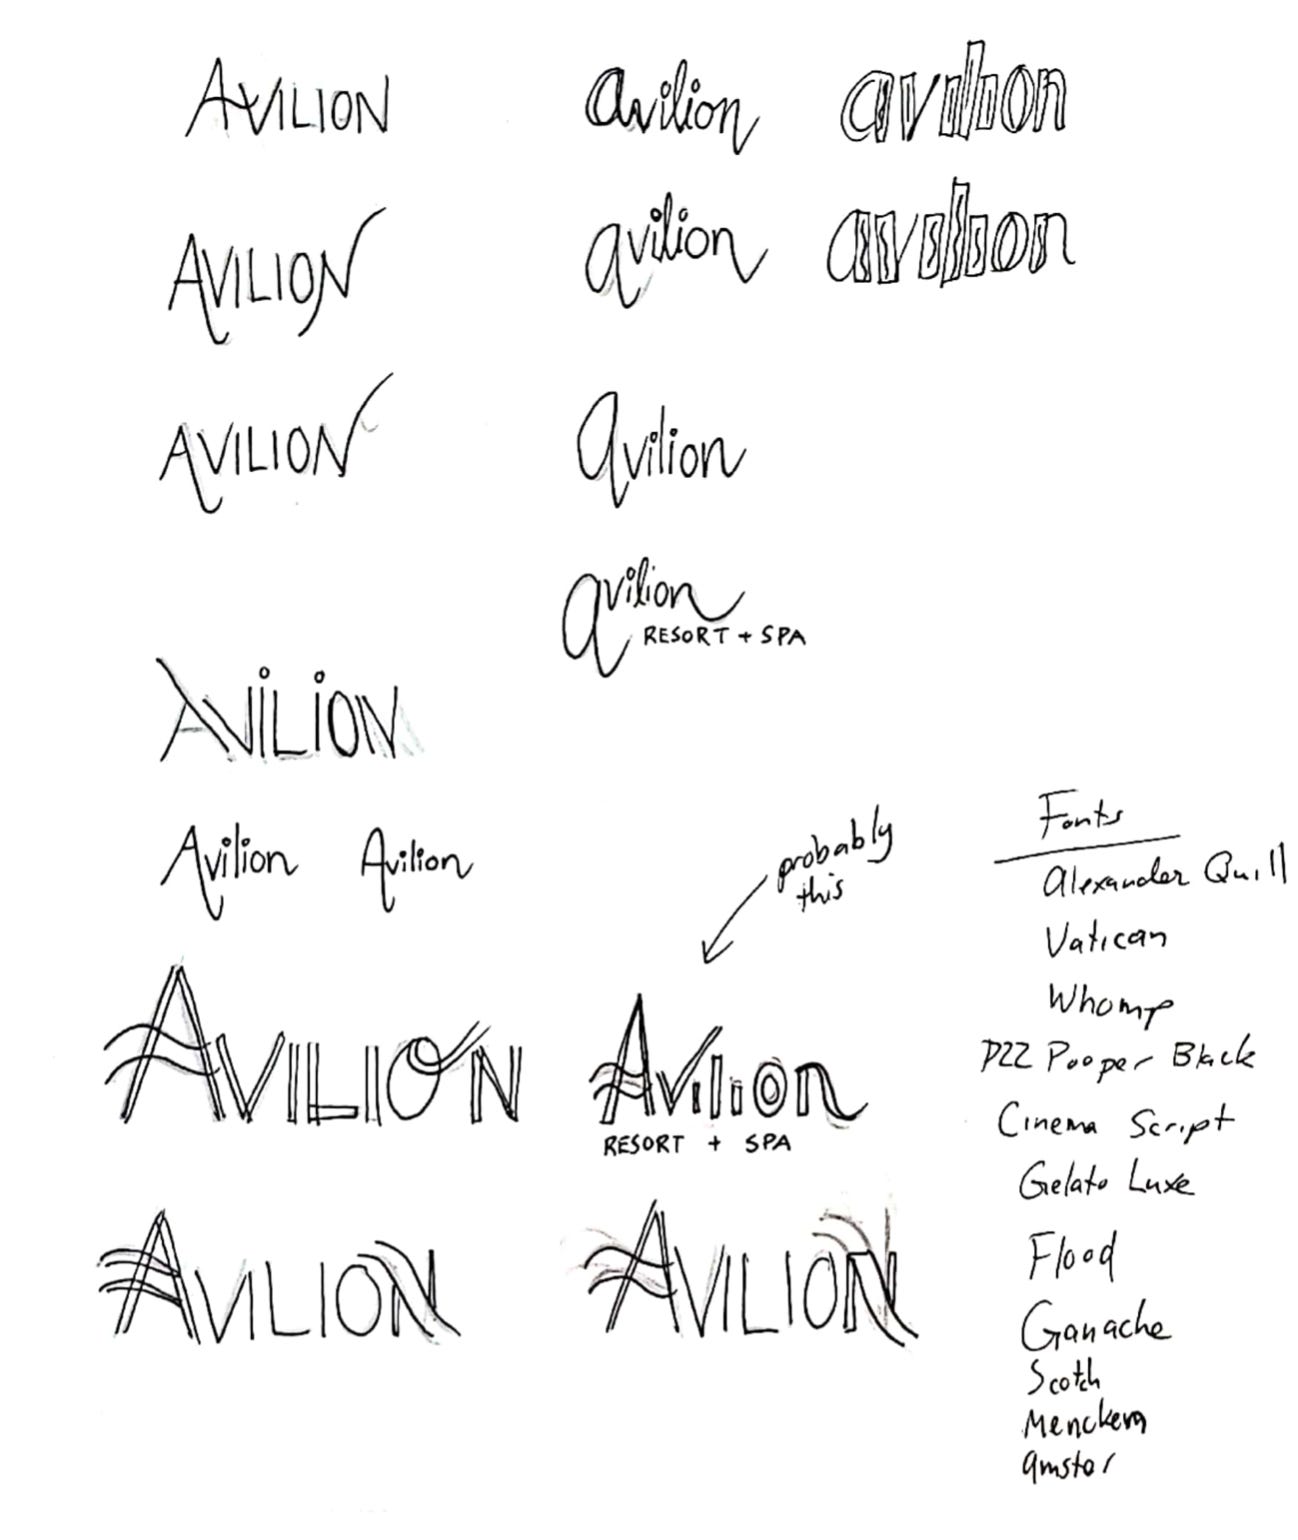 AVILION
avilion
avilion
AVILION
avilion
avilion
AVILION
avilion
avilion
RESORT + SPA
AViLiON
Avilion
Avilion
probably
this
AVILION
Avilion
RESORT + SPA
AVILION
AVILION
Fonts
Alexander Quill
Vatican
Whomp
P22 Pooper Black
Cinema Script
Gelato Luxe
Flood
Ganache
Scotch
Menckern
amster